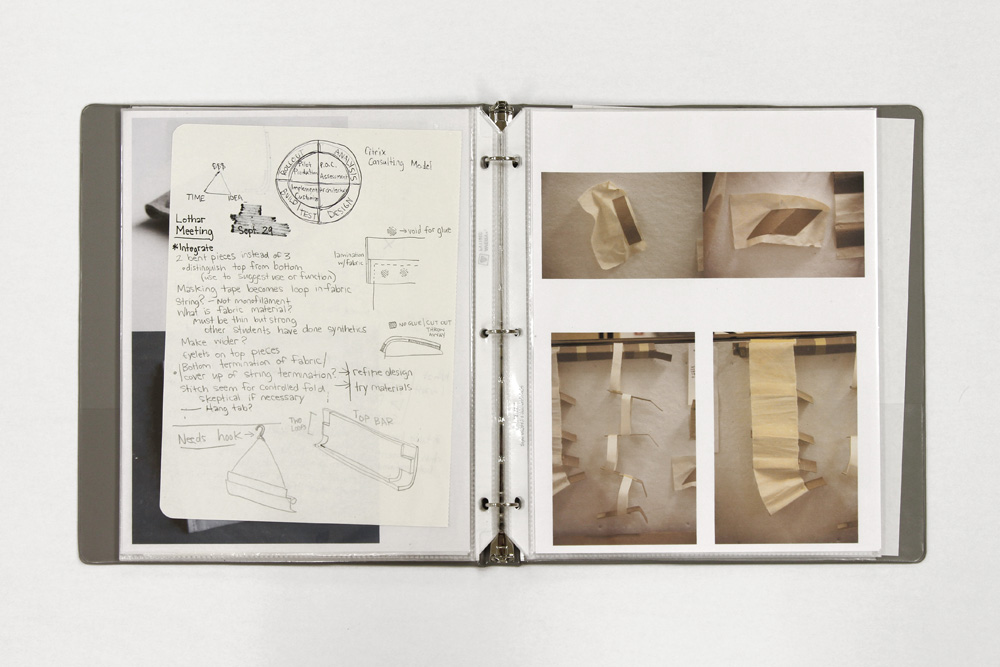 $$$
TIME IDEA
ROLLOUT
ANALYSIS
DESIGN
BUILD/TEST
Pilot
Production
P.O.C.
Assessment
Implement
Customize
Architecture
Citrix
Consulting Model
Lothar
Meeting
Sept. 29
*Integrate
2 bent pieces instead of 3
•distinguish top from bottom
(use to suggest use or function)
Masking tape becomes loop in fabric
String? - Not monofilament
What is fabric material?
must be thin but strong
other students have done synthetics
Make wider?
Eyelets on top pieces
Bottom termination of fabric/
cover up of string termination? → refine design
Stitch seem for controlled fold → try materials
skeptical if necessary
Hang tab?
→ void for glue
lamination
w/fabric
NO GLUE/CUT OUT
Needs hook →
THE
TOP BAR